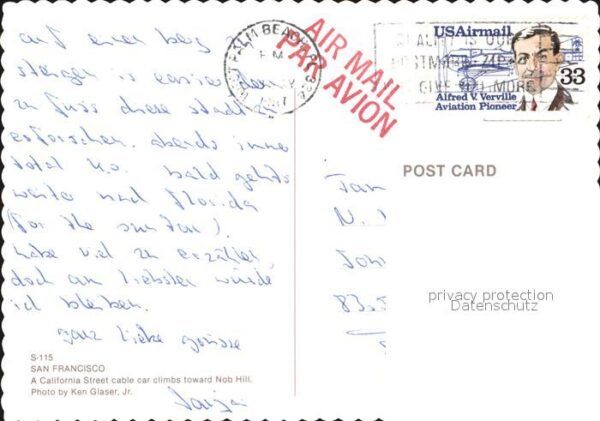 auf einen berg
steigen is easier dann
zu fuss diese stadt zu
erforschen. abends immer
total k.o. bald gehts
weiter nach florida
(for the suntan).
habe viel zu erzählen
doch am liebsten würde
ich bleiben.
ganz liebe grüsse
S-115
SAN FRANCISCO
A California Street cable car climbs toward Nob Hill.
Photo by Ken Glaser, Jr.
WEST PALM BEACH
PM
AIR MAIL
PAR AVION
POSTMARK ZIP
GIVE MORE
USAirmail
33
Alfred V. Verville
Aviation Pioneer
POST CARD
N.
privacy protection
Datenschutz